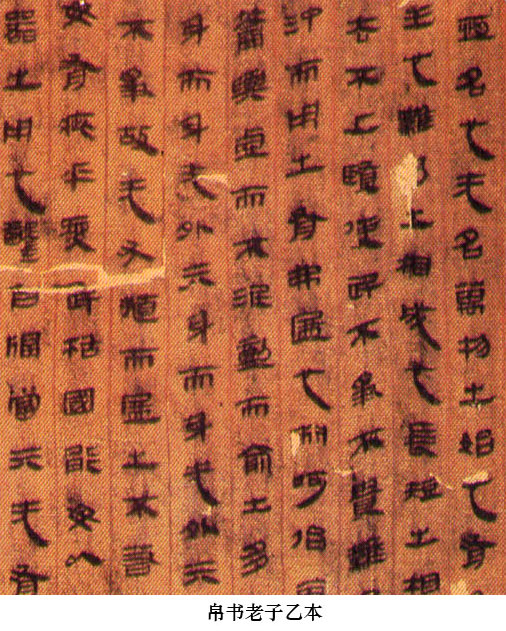 恆名也无名萬物之始也有
生也難易之相成也長短之相
去不上賢使民不爭不貴難
沖而用之有弗盈也淵呵佁
籥輿虛而不淈動而俞出多
身而身先外亓身而身先外亓
不爭故无尤而盈之不若
毋有疵乎愛民栝國能毋以
器之用也鑿戶牖當亓无有
帛书老子乙本